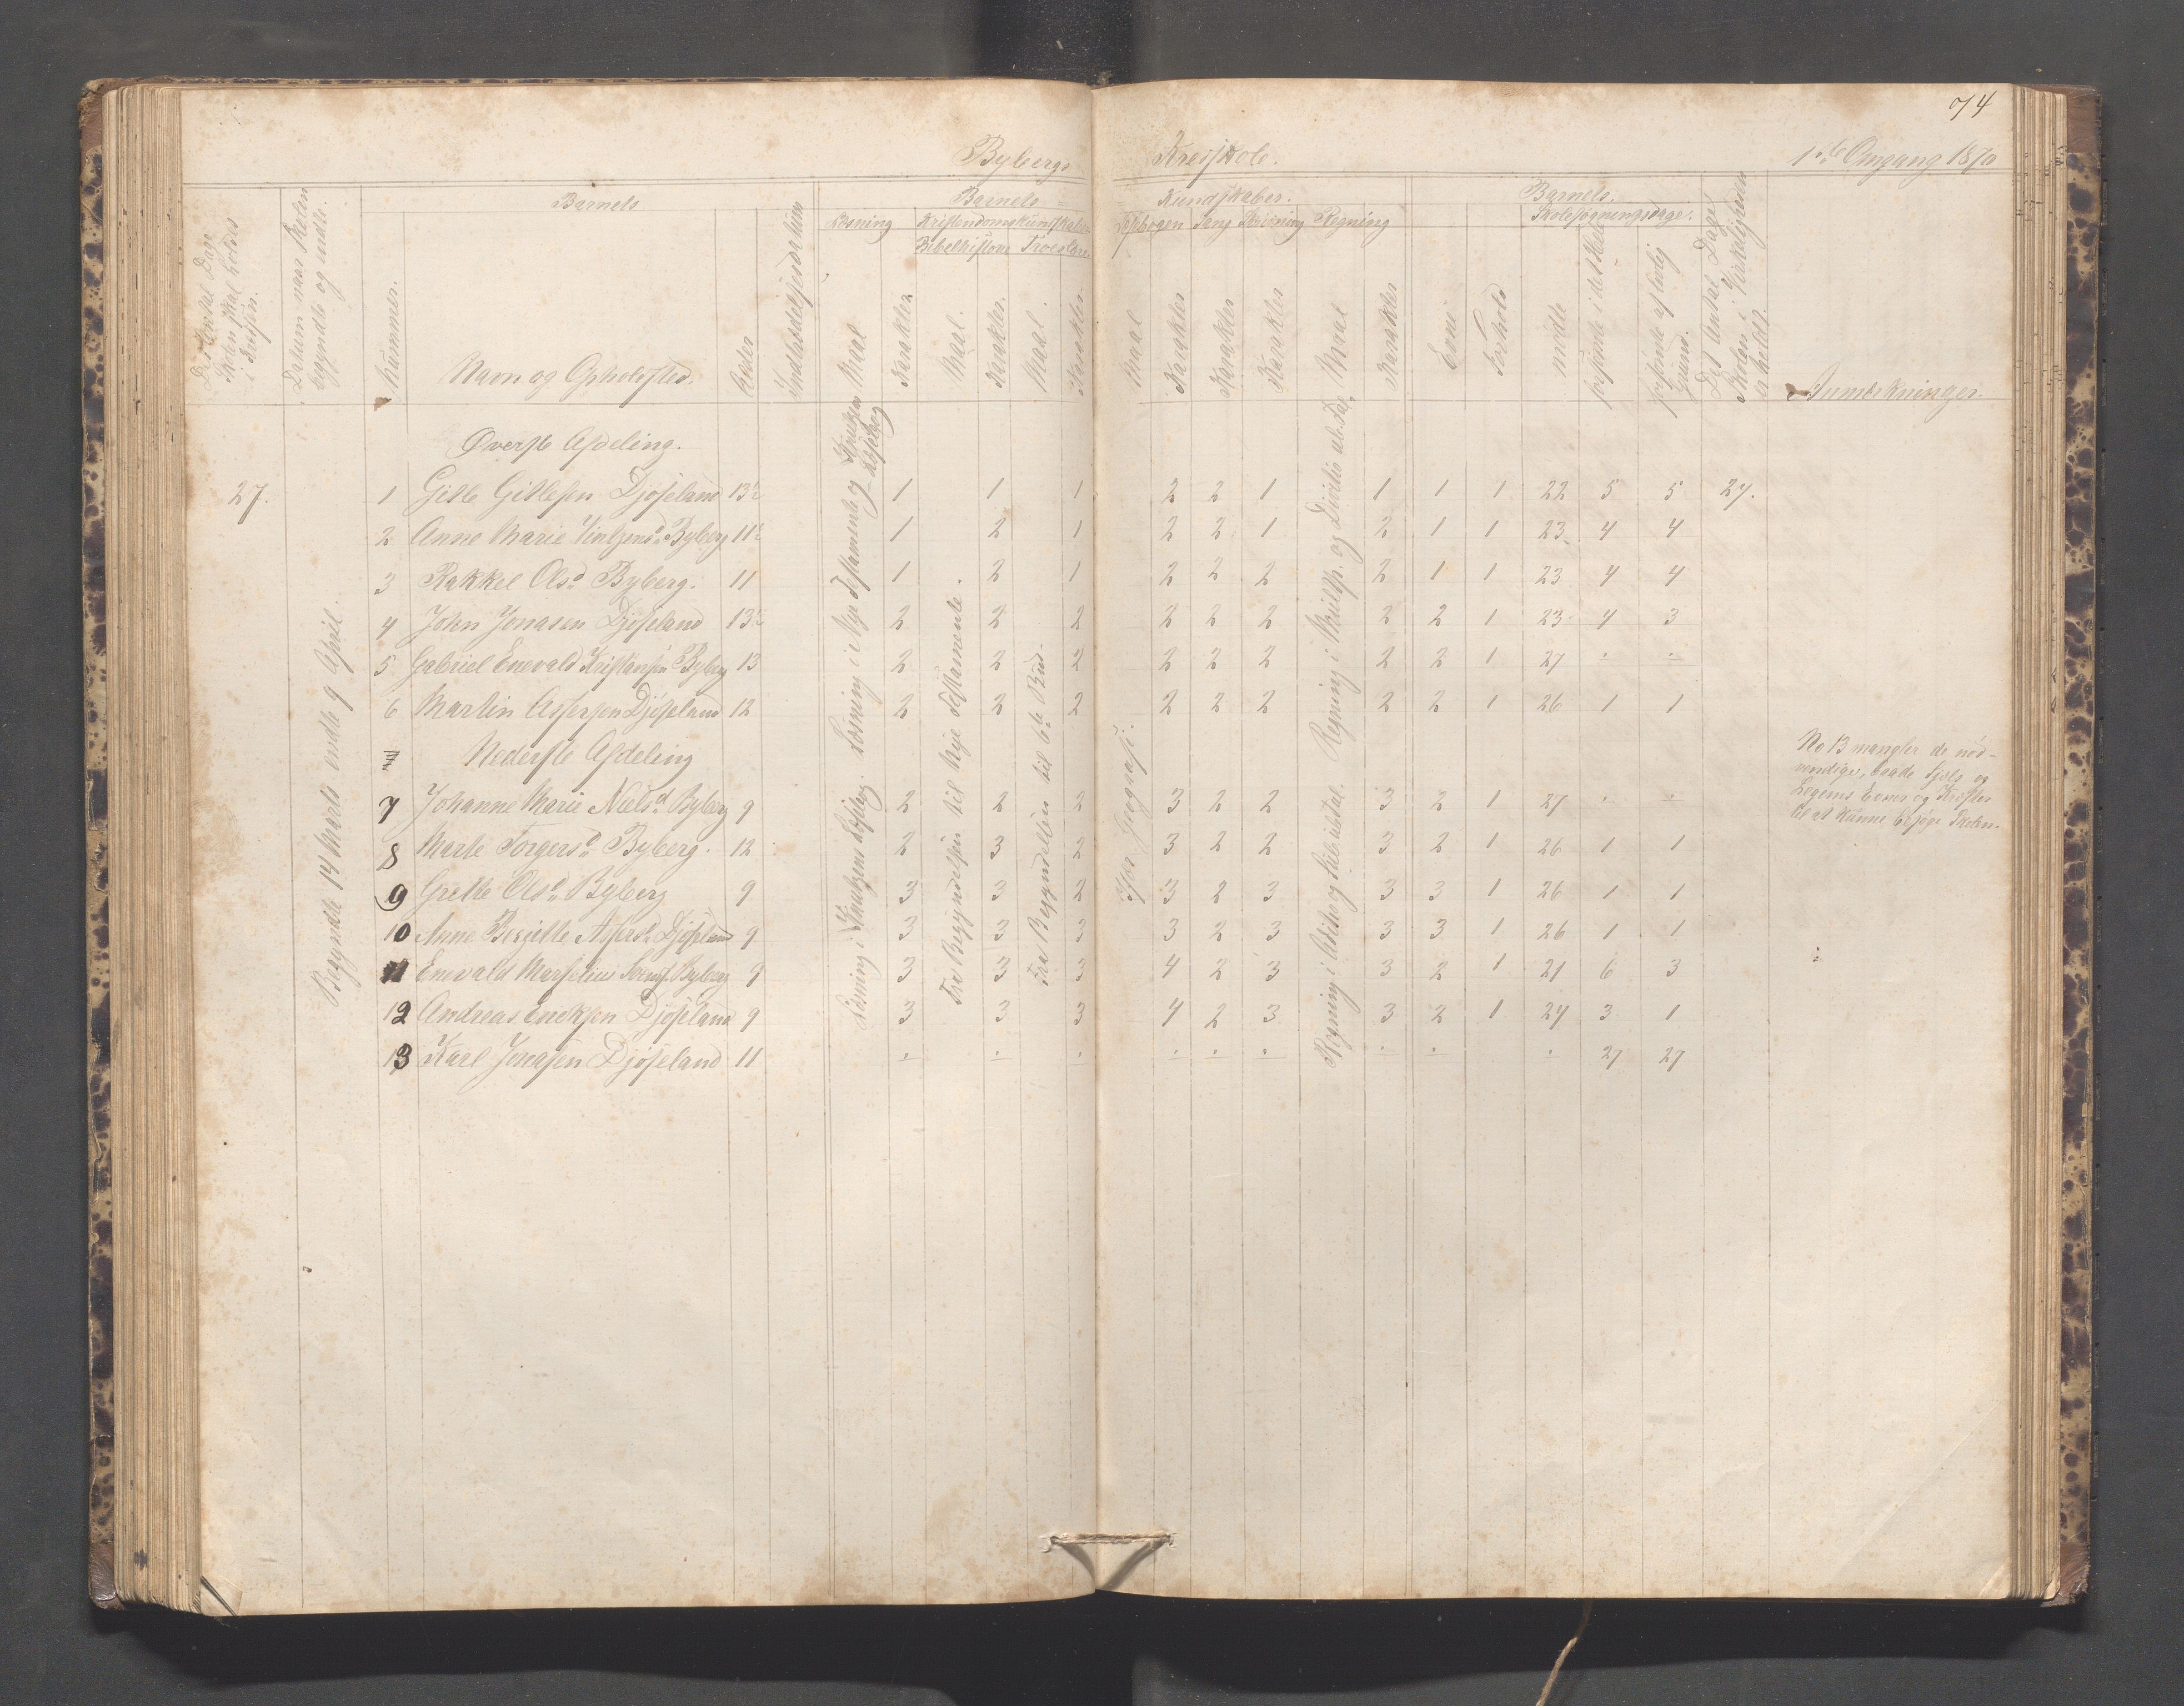 74
Bybergs Kredsskole. 1ste Omgang 1870
Det Antal Dage Skolen skal holdes i Kredsen.
Datum naar Skolen begyndte og endte.
Barnets
Nummer.
Navn og Opholdssted.
Alder
Indtrædelsesdatum
Barnets Kundskaber.
Læsning
Kristendomskundskaber
Bibelhistorie Troeslære
Læsebogen Sang Skrivning Regning
Maal
Karakter
Maal.
Karakter.
Maal.
Karakter.
Maal
Karakter
Karakter
Karakter
Maal
Karakter
Barnets.
Evne
Forhold
Skolesøgningsdage.
mødte
forsømte i det Hele
forsømte af lovlig Grund.
Det Antal Dage Skolen i Virkeligheden er holdt.
Anmærkninger.
Øverste Afdeling.
27.
Begyndte 14 Marts endte 9 April.
1 Gitle Gitlesen Djøseland 13½ 1 1 1 2 2 1 1 1 1 22 5 5 27.
2 Anne Marie Vintzensd. Byberg 11½ 1 2 1 2 2 1 2 1 1 23 4 4
3 Rakkel Olsd. Byberg. 11 1 2 1 2 2 2 2 1 1 23 4 4
4 John Jonasen Djøseland 13½ 2 2 2 2 2 2 2 2 1 23 4 3
5 Gabriel Enevald Kristansen Byberg 13 2 2 2 2 2 2 2 2 1 27 . .
6 Martin Assersen Djøseland 12 2 2 2 2 2 2 2 2 1 26 1 1
Nederste Afdeling
7 Johanne Marie Nielsd. Byberg 9 2 2 2 3 2 2 3 2 1 27 . .
8 Marte Torgersd. Byberg. 12 2 3 2 3 2 2 3 2 1 26 1 1
9 Grette Olsd. Byberg 9 3 3 2 3 2 3 3 3 1 26 1 1
10 Anne Bergitte Assersd. Djøseland 9 3 3 3 3 2 3 3 3 1 26 1 1
11 Enevald Marselius Byberg 9 3 3 3 4 2 3 3 2 1 21 6 3
12 Andreas Eriksen Djøseland 9 3 3 3 4 2 3 3 2 1 24 3 1
13 Karl Jonasen Djøseland 11 . . . . . . . . . 27 27
Læsning i Knutzens Læsebog. Læsning i Nye Testamente og Knutzens Læsebog
Fra Begyndelsen til Nye Testamente.
Fra Begyndelsen til 6te Bud.
Regning i Adition og Subt. i ubtal. Regning i Multip. og Division ub. Tal.
No 13 mangler de nød-
vendige, baade Sjels og
Legems Evner og Kræfter
til at kunne besøge Skolen.